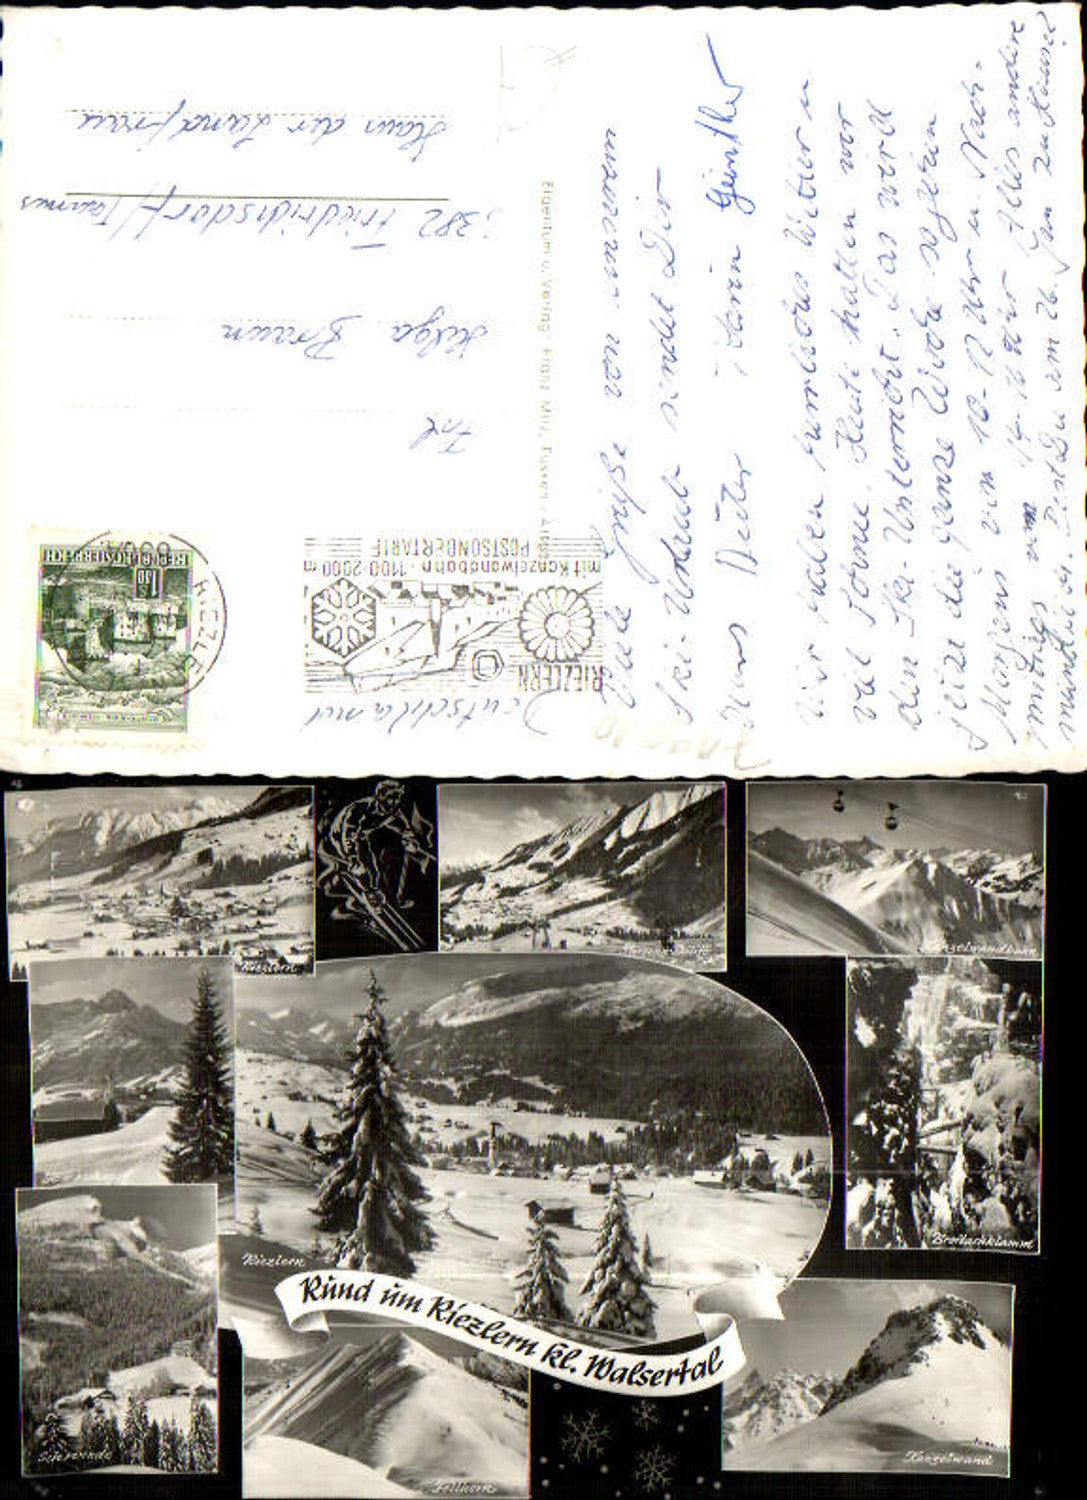 Viele Grüße von unserem
Ski-Urlaub sendet Dir
Dieter Karin Günther
Wir haben herrliches Wetter u.
viel Sonne. Heute hatten wir
den Ski-Unterricht. Das wird
die ganze Woche so gehen
Morgens von 10-12 Uhr u. Nach-
mittags von 14-16 Uhr. Alles andere
mündlich. Bist Du am 26. Jan zuhause
Eigentum u. Verlag Franz Milz, Füssen
Deutschland
RIEZLERN
mit Kanzelwandbahn · 1100-2000 m
POSTSONDERTARIF
RIEZLE
REPUBLIK ÖSTERREICH
S 1.80
Frl
Helga Braun
6382 Friedrichsdorf/Taunus
Haus der Landfrau
Riezlern
Kanzelwandbahn
Breitachklamm
Riezlern
Rund um Riezlern kl. Walsertal
Fellhorn
Kanzelwand